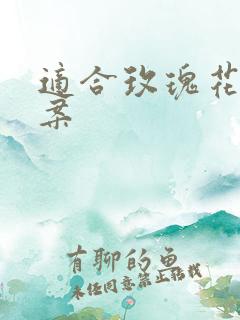 適合玫瑰花
案
有聊的魚
未经同意禁止搭载